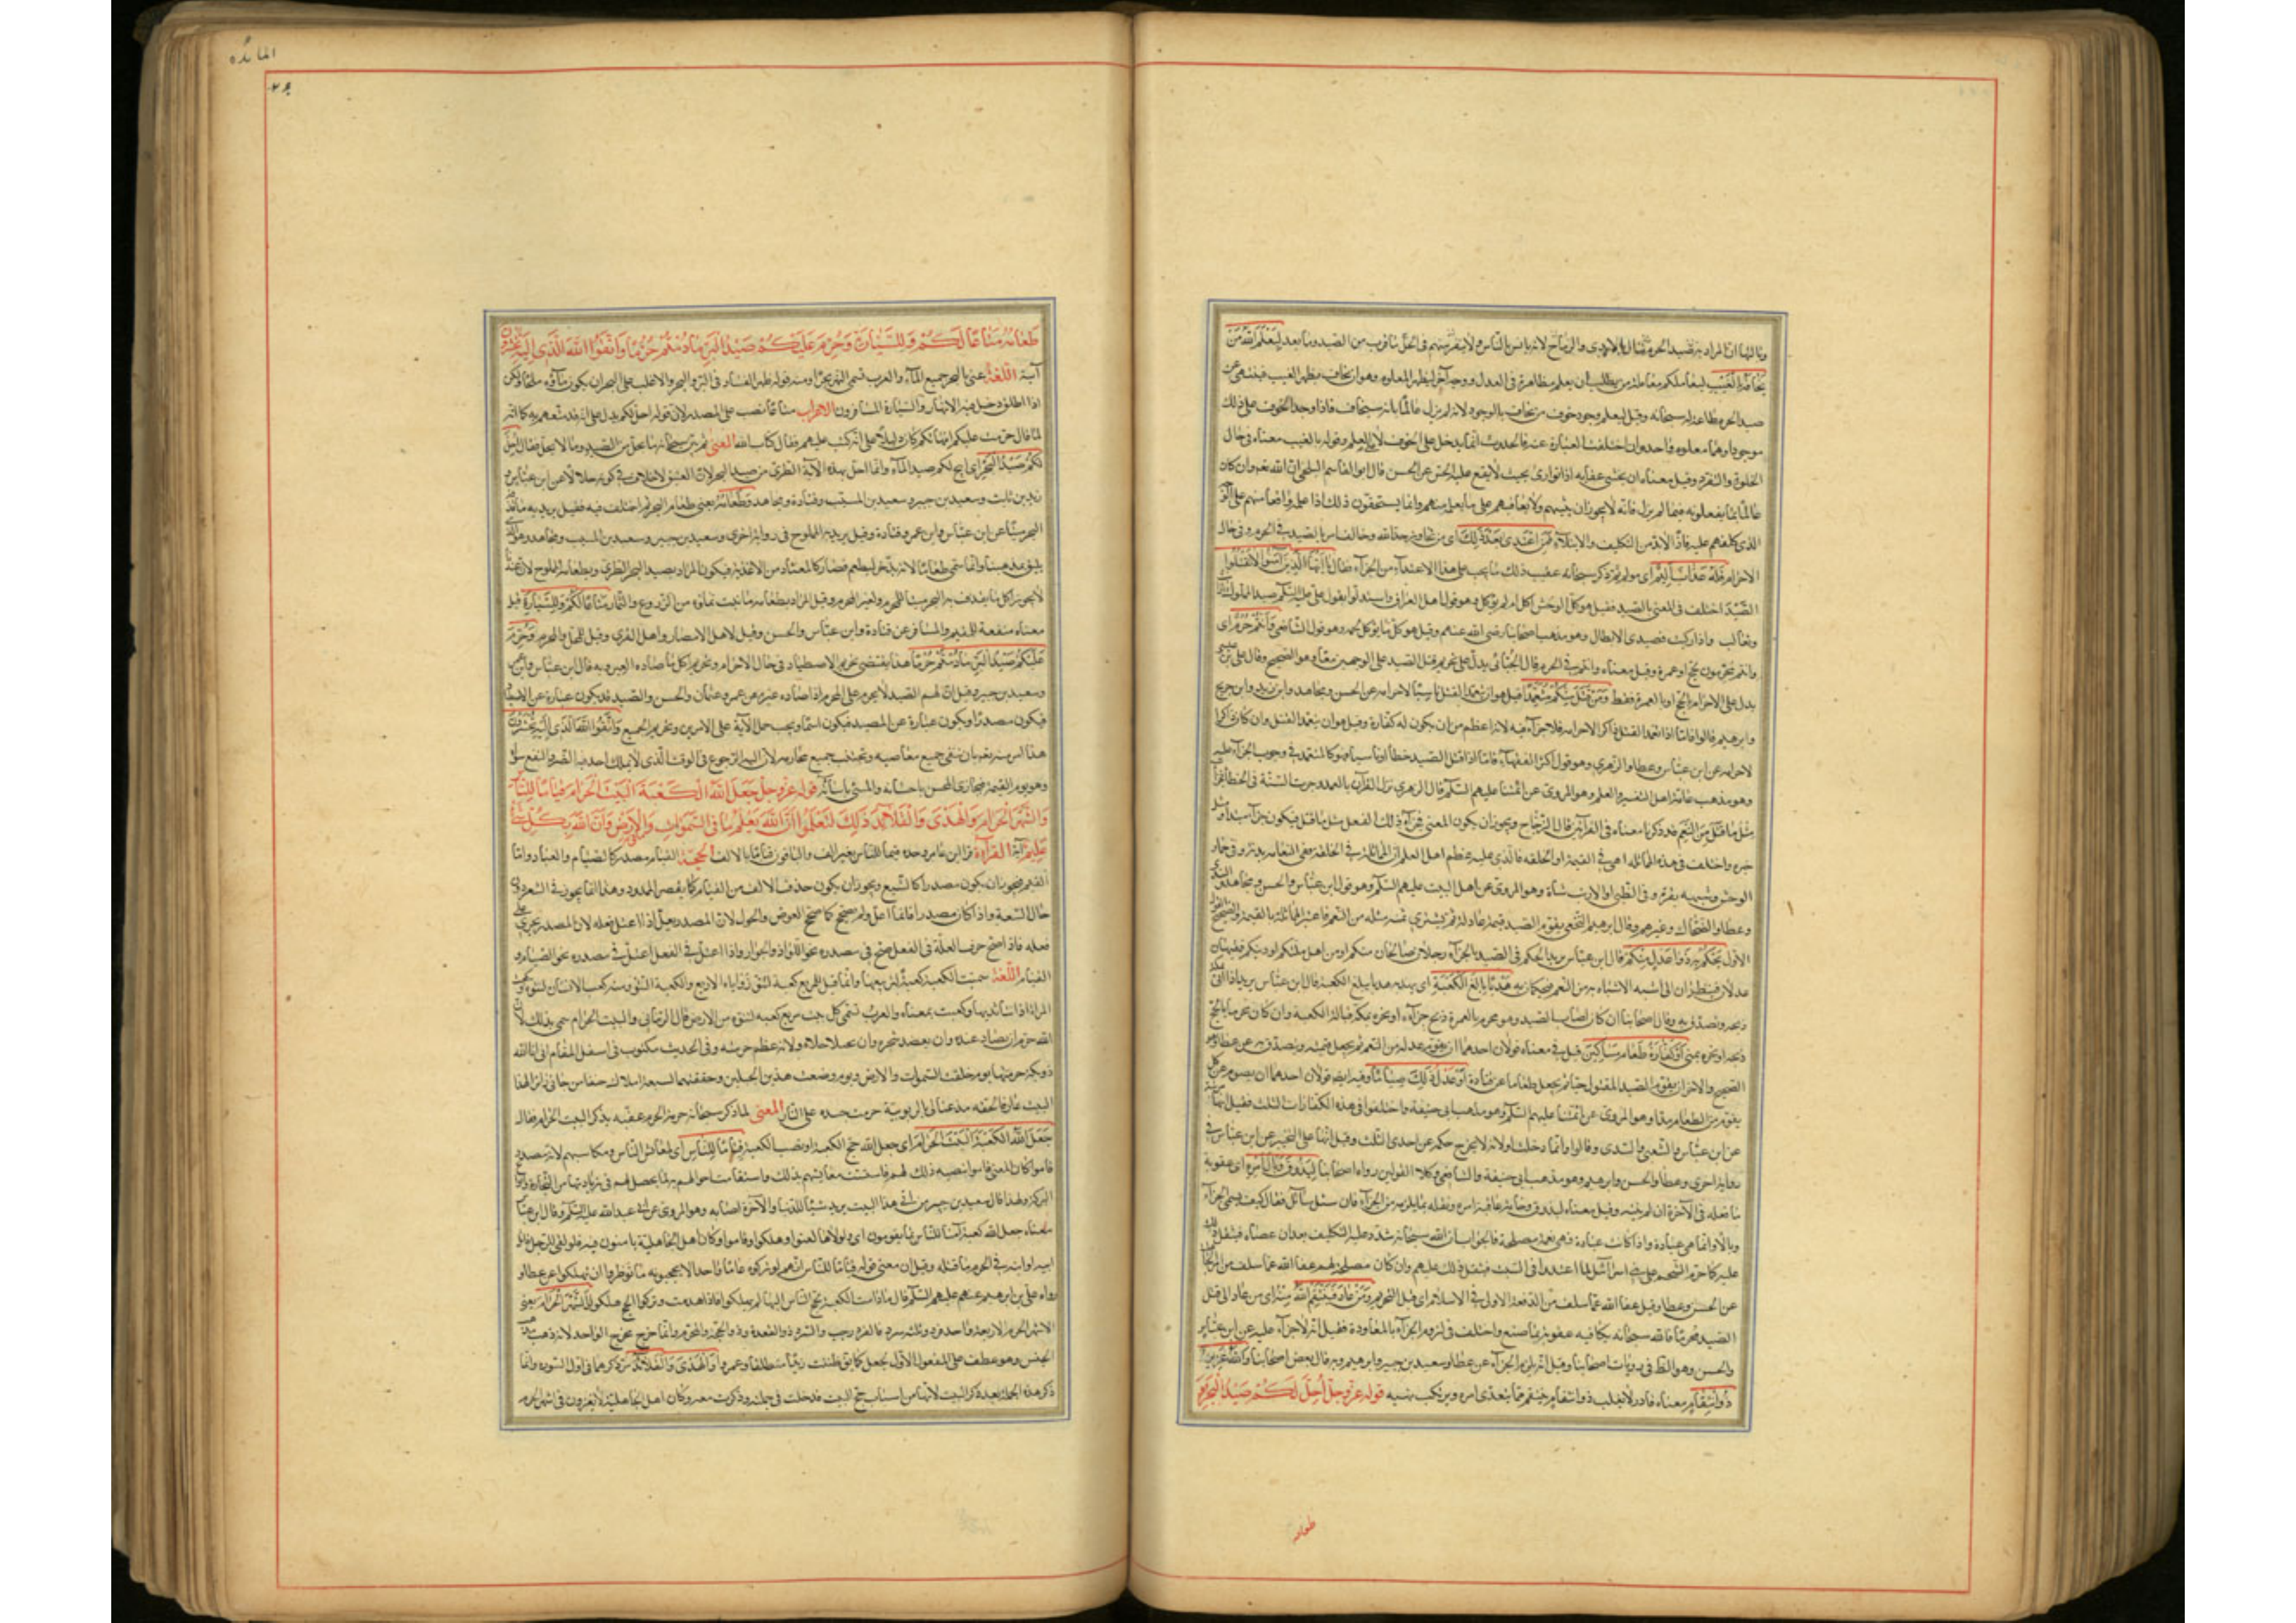 وثالثها ان المراد به صيد الحرم لانه يانس بالناس ولا ينفر منهم في الحل ما قرب من الصيد وما بعد ليعلم الله من
يخافه بالغيب ليعاملكم معاملة من يطلب ان يعلم مظاهرة في العدل ووجه آخر ليظهر المعلوم وهو ان يخاف بظهر الغيب فينتهي عن
صيد الحرم طاعة له سبحانه وقيل ليعلم وجود خوف من يخافه بالوجود لانه لم يزل عالما بانه سيخاف فاذا وجد الخوف علم ذلك
موجودا وهما معلوم واحد وان اختلفت العبارة عنه فالحدوث انما يدخل على الخوف لا على العلم وقوله بالغيب معناه في حال
الخلوة والتفرد وقيل معناه ان يخشى عقابه اذا توارى بحيث لا يقع عليه الحس عن الحسن قال ابو القاسم البلخي ان الله تعالى وان كان
عالما بما يفعلونه فيما لم يزل فانه لا يجوز ان يثيبهم ولا يعاقبهم على ما يعلم منهم وانما يستحقون ذلك اذا علمه واقعا منهم على الوجه
الذي كلفهم عليه فاذا لا بد من التكليف والابتلاء فمن اعتدى بعد ذلك اي من تجاوز حد الله وخالف امره بالصيد في الحرم وفي حال
الاحرام فله عذاب اليم اي مولم ثم ذكر سبحانه عقيب ذلك ما يجب على هذا الاعتداء من الجزاء فقال يا ايها الذين آمنوا لا تقتلوا
الصيد اختلف في المعني بالصيد فقيل هو كل الوحش اكل او لم يؤكل وهو قول اهل العراق واستدلوا بقول علي عليه السلم صيد الملوك ارانب
وثعالب واذا ركبت فصيدي الابطال وهو مذهب اصحابنا رضي الله عنهم وقيل هو كل ما يؤكل لحمه وهو قول الشافعي وانتم حرم اي
وانتم محرمون بحج او عمرة وقيل معناه وانتم في الحرم قال الجبائي يدل على تحريم قتل الصيد على الوجهين معا وهو الصحيح وقال علي بن عيسى
يدل على الاحرام بالحج او بالعمرة فقط ومن قتله منكم متعمدا قيل هو ان يتعمد القتل ناسيا لاحرامه عن الحسن ومجاهد وابن زيد وابن جريج
وابرهيم قالوا فاما اذا تعمد القتل ذاكرا لاحرامه فلا جزاء فيه لانه اعظم من ان يكون له كفارة وقيل هو ان يتعمد القتل وان كان ذاكرا
لاحرامه عن ابن عباس وعطا والزهري وهو قول اكثر الفقهاء فاما اذا قتل الصيد خطأ او ناسيا فهو كالمتعمد في وجوب الجزاء عليه
وهو مذهب عامة اهل التفسير والعلم وهو المروي عن ائمتنا عليهم السلم قال الزهري نزل القرآن بالعمد وجرت السنة في الخطأ فجزاء
مثل ما قتل من النعم قد ذكرنا معناه في القراءتين قال الزجاج ويجوز ان يكون المعنى فجزاء ذلك الفعل مثل ما قتل فيكون جزاء مبتدأ ومثل
خبره واختلف في هذه المماثلة اهي في القيمة او الخلقة فالذي عليه معظم اهل العلم ان المماثلة في الخلقة ففي النعامة بدنة وفي حمار
الوحش وشبهه بقرة وفي الظبي والارنب شاة وهو المروي عن اهل البيت عليهم السلم وهو قول ابن عباس والحسن ومجاهد والسدي
وعطا والضحاك وغيرهم وقال ابرهيم النخعي يقوم الصيد قيمة عادلة ثم يشترى بثمنه مثله من النعم فاعتبر المماثلة بالقيمة والصحيح القول
الاول يحكم به ذوا عدل منكم قال ابن عباس يريد يحكم في الصيد بالجزاء رجلان صالحان منكم اي من اهل ملتكم ودينكم فقيهان
عدلان فينظران الى اشبه الاشياء به من النعم فيحكمان به هديا بالغ الكعبة اي يهديه هديا يبلغ الكعبة قال ابن عباس يريد اذا اتى مكة
ذبحه وتصدق به وقال اصحابنا ان كان اصاب الصيد وهو محرم بالعمرة ذبح جزاءه او نحره بمكة قبالة الكعبة وان كان محرما بالحج
ذبحه او نحره بمنى او كفارة طعام مساكين قيل في معناه قولان احدهما ان يقوم عدله من النعم ثم يجعل قيمته ويتصدق به عن عطا وهو
الصحيح والاخر ان يقوم الصيد المقتول حيا ثم يجعل طعاما عن قتادة او عدل ذلك صياما وفيه ايضا قولان احدهما ان يصوم عن كل
يقوم من الطعام مدا وهو المروي عن ائمتنا عليهم السلم وهو مذهب ابي حنيفة واختلفوا في هذه الكفارات الثلث فقيل انها مرتبة
عن ابن عباس والشعبي والسدي وقالوا وانما دخلت او لانه لا يخرج حكمه عن احدى الثلث وقيل انها على التخيير عن ابن عباس في
رواية اخرى وعطا والحسن وابرهيم وهو مذهب ابي حنيفة والشافعي وكلا القولين رواه اصحابنا ليذوق وبال امره اي عقوبة
ما فعله في الآخرة ان لم يتب وقيل معناه ليذوق وخامة عاقبة امره وثقله بما يلزمه من الجزاء فان سئل سائل فقال كيف يسمى الجزاء
وبالا وانما هي عبادة واذا كانت عبادة فهي نعمة ومصلحة فالجواب ان الله سبحانه شدد عليه التكليف بعد ان عصاه فيثقل ذلك
عليه كما حرم الشحم على بني اسرائيل لما اعتدوا في السبت فيثقل ذلك عليهم وان كان مصلحة لهم عفا الله عما سلف من امر الجاهلية
عن الحسن وعطا وقيل عفا الله عما سلف من الدفعة الاولى في الاسلام اي قبل التحريم ومن عاد فينتقم الله منه اي من عاد الى قتل
الصيد محرما فالله سبحانه يكافيه عقوبة بما صنع واختلف في لزوم الجزاء بالمعاودة فقيل انه لا جزاء عليه عن ابن عباس
والحسن وهو الظ في روايات اصحابنا وقيل انه يلزمه الجزاء عن عطا وسعيد بن جبير وابرهيم وبه قال بعض اصحابنا والله عزيز
ذو انتقام معناه قادر لا يغلب ذو انتقام ينتقم ممن يتعدى امره ويرتكب نهيه قوله عز وجل احل لكم صيد البحر و
طعامه
المائده
طعامه متاعا لكم وللسيارة وحرم عليكم صيد البر ما دمتم حرما واتقوا الله الذي اليه تحشرون
آية اللغة يعني بالبحر جميع الماء والعرب تسمي النهر بحرا ومنه قوله ظهر الفساد في البر والبحر والاغلب على البحر ان يكون ماؤه ملحا ولكن
اذا اطلق دخل فيه الانهار والسيارة المسافرون الاعراب متاعا نصب على المصدر لان قوله احل لكم يدل على انه قد متعهم به كما انه
لما قال حرمت عليكم امهاتكم كان دليلا على انه كتب عليهم فقال كتاب الله المعنى ثم بين سبحانه ما يحل من الصيد وما لا يحل فقال احل
لكم صيد البحر اي ابيح لكم صيد الماء وانما احل بهذه الآية الطري من صيد البحر لان العتيق لا خلاف في كونه حلالا عن ابن عباس و
زيد بن ثابت وسعيد بن جبير وسعيد بن المسيب وقتادة ومجاهد وطعامه يعني طعام البحر ثم اختلف فيه فقيل يريد به ما قذفه
البحر ميتا عن ابن عباس وابن عمر وقتادة وقيل يريد به المملوح في رواية اخرى وسعيد بن جبير وسعيد بن المسيب ومجاهد وهو الذي
يليق بمذهبنا وانما سمي طعاما لانه يدخر ليطعم فصار كالمعتاد من الاغذية فيكون المراد بصيد البحر الطري وبطعامه المملوح لان عندنا
لا يجوز اكل ما يقذف به البحر ميتا للمحرم ولغير المحرم وقيل المراد بطعامه ما نبت بمائه من الزروع والثمار متاعا لكم وللسيارة قيل
معناه منفعة للمقيم والمسافر عن قتادة وابن عباس والحسن وقيل لاهل الامصار واهل القرى وقيل للمحل والمحرم وحرم
عليكم صيد البر ما دمتم حرما هذا يقتضي تحريم الاصطياد في حال الاحرام وتحريم اكل ما صاده الغير وبه قال ابن عباس وابن عمر
وسعيد بن جبير وقيل ان لحم الصيد لا يحرم على المحرم اذا صاده غيره عن عمر وعثمان والحسن والصيد قد يكون عبارة عن الاصطياد
فيكون مصدرا ويكون عبارة عن المصيد فيكون اسما ويجب حمل الآية على الامرين وتحريم الجميع واتقوا الله الذي اليه تحشرون
هذا امر منه تعالى بان يتقى جميع معاصيه ويجتنب جميع محارمه لان اليه الرجوع في الوقت الذي لا يملك احد فيه الضر والنفع سواه
وهو يوم القيمة فيجازي المحسن باحسانه والمسئ باساءته قوله عز وجل جعل الله الكعبة البيت الحرام قياما للناس
والشهر الحرام والهدى والقلائد ذلك لتعلموا ان الله يعلم ما في السموات وما في الارض وان الله بكل شئ
عليم آية القراءة قرأ ابن عامر وحده قيما للناس بغير الف والباقون قياما بالالف الحجة القيام مصدر كالصيام والعياذ واما
القيم فيجوز ان يكون مصدرا كالشبع ويجوز ان يكون حذف الالف من القيام كما يقصر الممدود وهذا انما يجوز في الشعر دون
حال السعة واذا كان مصدرا فانما اعل ولم يصحح كما صحح العوض والحول لان المصدر يعل اذا اعتل فعله لان المصدر يجري على
فعله فاذا صح حرف العلة في الفعل صح في مصدره نحو اللواذ والجوار واذا اعتل في الفعل اعتل في مصدره نحو الصيام و
القيام اللغة سميت الكعبة كعبة لتربيعها وانما قيل للمربع كعبة لنتو زواياه الاربع والكعبة النتو ومنه كعب الانسان لنتوه وكعبت
المراة اذا نتا ثديها وكعبت بمعناه والعرب تسمي كل بيت مربع كعبه لنتوه من الارض قال الرماني والبيت الحرام سمي بذلك لان
الله حرم ان يصاد عنده وان يعضد شجره وان يختلا خلاه ولانه عظم حرمته وفي الحديث مكتوب في اسفل المقام اني انا الله
ذو بكة حرمتها يوم خلقت السموات والارض ويوم وضعت هذين الجبلين وحففتهما بسبعة املاك حنفا من جاءني زائرا لهذا
البيت عارفا لحقه مذعنا لي بالربوبية حرمت جسده على النار المعنى لما ذكر سبحانه حرمة الحرم عقبه بذكر البيت الحرام فقال
جعل الله الكعبة البيت الحرام اي جعل الله حج الكعبة او نصب الكعبة قياما للناس اي لمعائش الناس ومكاسبهم لانه مصدر
قاموا كان المعنى قاموا بنصبه ذلك لهم فاستتبت معائشهم بذلك واستقامت احوالهم به لما يحصل لهم في زيارتها من التجارة وانواع
البركة ولهذا قال سعيد بن جبير من اتى هذا البيت يريد شيئا للدنيا والآخرة اصابه وهو المروي عن ابي عبد الله عليه السلم وقال ابن عباس
معناه جعل الله الكعبة امنا للناس بها يقومون اي ولولاها لفنوا وهلكوا وما قاموا وكان اهل الجاهلية يامنون فيه فلو لقي الرجل قاتل
ابيه او ابنه في الحرم ما قتله وقيل ان معنى قوله قياما للناس انهم لو تركوه عاما واحدا لا يحجونه ما نوظروا ان يهلكوا عن عطا و
رواه علي بن ابرهيم عنهم عليهم السلم قال ما دامت الكعبة يحج الناس اليها لم يهلكوا فاذا هدمت وتركوا الحج هلكوا والشهر الحرام يعني
الاشهر الحرم الاربعة واحد فرد وثلثة سرد فالفرد رجب والسرد ذو القعدة وذو الحجة والمحرم وانما خرج مخرج الواحد لانه ذهب به مذهب
الجنس وهو عطف على المفعول الاول لجعل كما يق ظننت زيدا منطلقا وعمروا والهدى والقلائد مر ذكرهما في اول السورة وانما
ذكر هذه الجملة بعد ذكر البيت لانها من اسباب حج البيت فدخلت في جملته وذكرت معه وكان اهل الجاهلية لا يغزون في اشهر الحرم